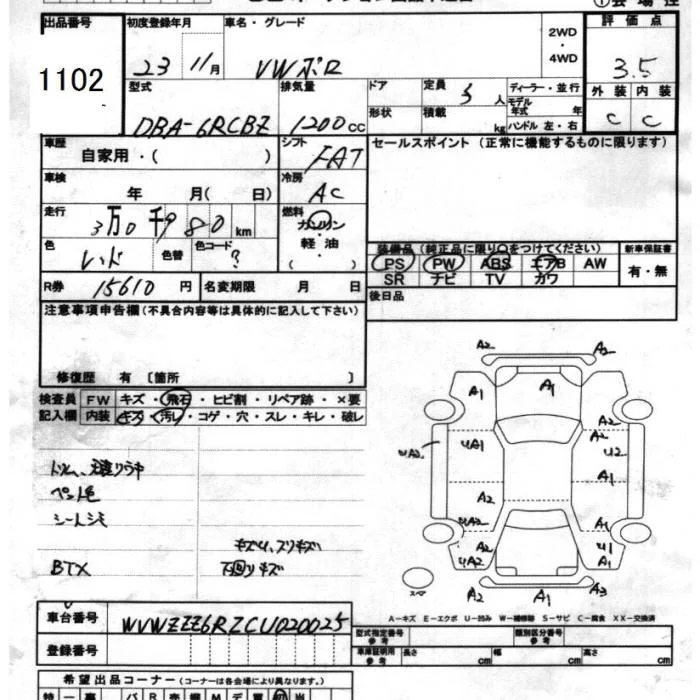 出品番号 初度登録年月 車名・グレード 2WD・4WD 評価点
1102 23 11月 VWポロ 3.5
型式 排気量 ドア 定員 5人 ディーラー・並行 外装 内装
形状 積載 kg モデル年式 年
DBA-6RCBZ 1200cc ハンドル 左・右 C C
車歴 シフト セールスポイント(正常に機能するものに限ります)
自家用・( ) FAT
車検 冷房
年 月( 日) AC
走行 燃料
3万0千980km ガソリン・軽油
色 色替 色コード ( )
レッド ?
装備品(純正品に限り○をつけてください) 新車保証書
PS PW ABS エアB AW 有・無
SR ナビ TV カワ
R券 15610円 名変期限 月 日
後日品
注意事項申告欄(不具合内容等は具体的に記入して下さい)
修復歴 有〔箇所 〕
検査員 FW キズ・飛石・ヒビ割・リペア跡・×要
記入欄 内装 キズ・汚レ・コゲ・穴・スレ・キレ・破レ
ペット毛
シートシミ
キズ凹、スリキズ
BTX 下回りキズ
A2 A2
A1 A1 A2
A2
UA2 UA1 U2
A1
A2
UA2 A1
A2 U1
UA2 A1
A2 A1 A3
スペア
A-キズ E-エクボ U-凹み W-補修跡 S-サビ C-腐食 XX-交換済
車台番号 WVWZZZ6RZCU020025
型式指定番号 参考 類別区分番号 参考
登録番号
車庫証明用 参考 長さ cm 幅 cm 高さ cm
希望出品コーナー(コーナーは各会場により異なります。)